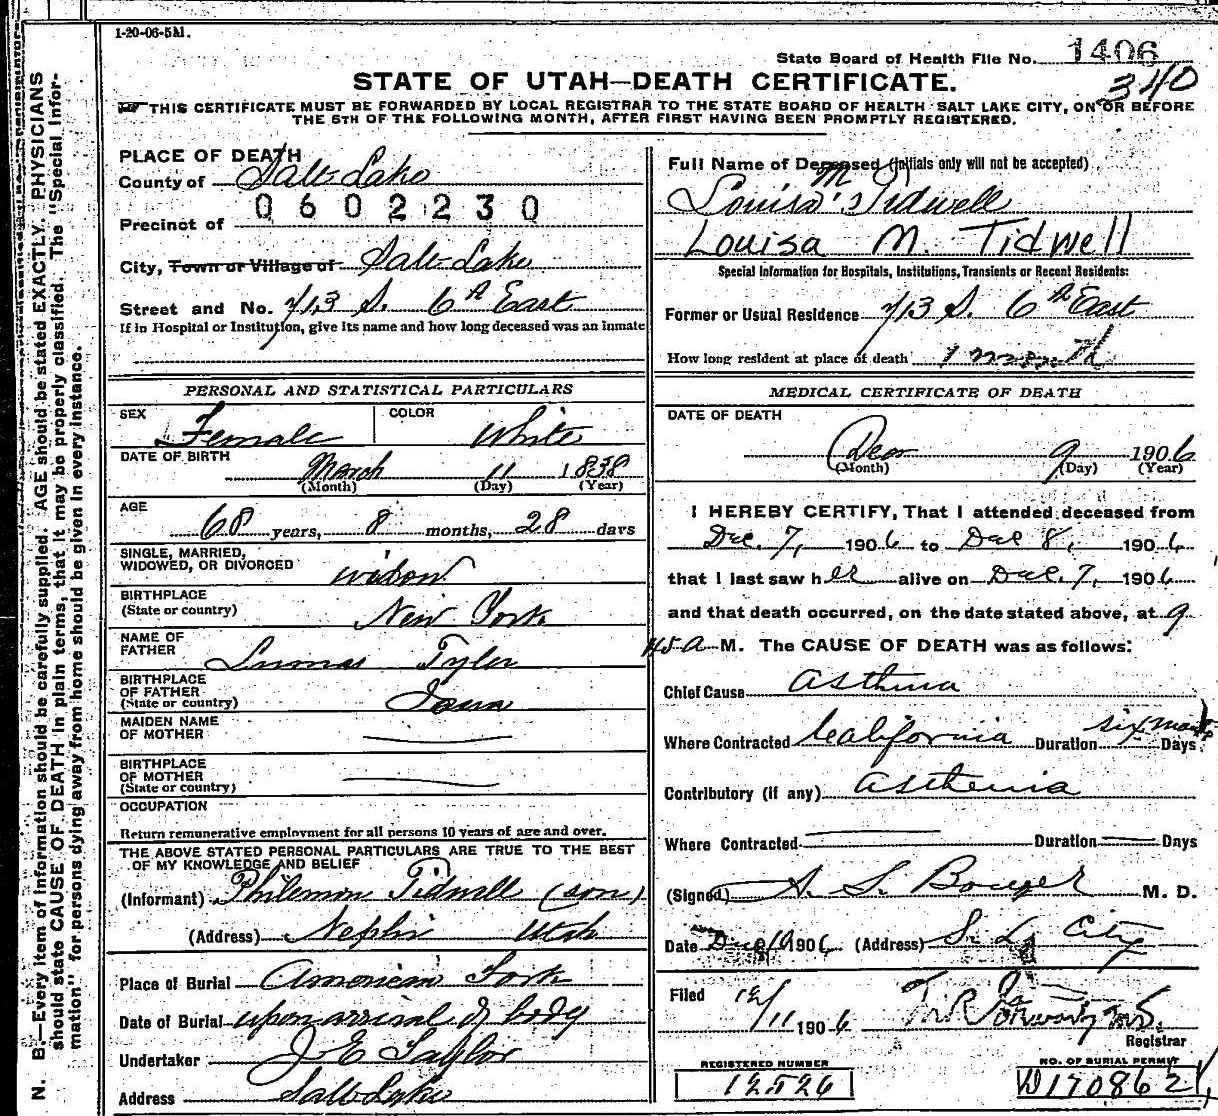 1-20-06-5M.
State Board of Health File No. 1406
340
STATE OF UTAH—DEATH CERTIFICATE.
THIS CERTIFICATE MUST BE FORWARDED BY LOCAL REGISTRAR TO THE STATE BOARD OF HEALTH SALT LAKE CITY, ON OR BEFORE
THE 5TH OF THE FOLLOWING MONTH, AFTER FIRST HAVING BEEN PROMPTLY REGISTERED.
N. B.—Every item of information should be carefully supplied. AGE should be stated EXACTLY. PHYSICIANS
should state CAUSE OF DEATH in plain terms, that it may be properly classified. The "Special Infor-
mation" for persons dying away from home should be given in every instance.
PLACE OF DEATH
County of Salt Lake
0602230
Precinct of
City, Town or Village of Salt Lake
Street and No. 713 S. 6th East
If in Hospital or Institution, give its name and how long deceased was an inmate
Full Name of Deceased (Initials only will not be accepted)
Louisa M Tidwell
Louisa M. Tidwell
Special Information for Hospitals, Institutions, Transients or Recent Residents:
Former or Usual Residence 713 S. 6th East
How long resident at place of death 1 month
PERSONAL AND STATISTICAL PARTICULARS
SEX Female COLOR White
DATE OF BIRTH March 11 1838
(Month) (Day) (Year)
AGE 68 years, 8 months, 28 days
SINGLE, MARRIED,
WIDOWED, OR DIVORCED widow
BIRTHPLACE
(State or country) New York
NAME OF
FATHER Tyler
BIRTHPLACE
OF FATHER
(State or country)
MAIDEN NAME
OF MOTHER
BIRTHPLACE
OF MOTHER
(State or country)
OCCUPATION
Return remunerative employment for all persons 10 years of age and over.
THE ABOVE STATED PERSONAL PARTICULARS ARE TRUE TO THE BEST
OF MY KNOWLEDGE AND BELIEF
(Informant) Philemon Tidwell (son)
(Address) Nephi Utah
Place of Burial American Fork
Date of Burial upon arrival of body
Undertaker J E Taylor
Address Salt Lake
MEDICAL CERTIFICATE OF DEATH
DATE OF DEATH
Dec 9 1906
(Month) (Day) (Year)
I HEREBY CERTIFY, That I attended deceased from
Dec. 7, 1906 to Dec 8, 1906
that I last saw her alive on Dec. 7, 1906
and that death occurred, on the date stated above, at 9
45 a M. The CAUSE OF DEATH was as follows:
Chief Cause asthma
Where Contracted California Duration six Days
Contributory (if any) asthenia
Where Contracted Duration Days
(Signed) A. S. Bower M. D.
Date Dec 10 1906 (Address) S. L. City
Filed 12/11 1906
Registrar
REGISTERED NUMBER
12526
NO. OF BURIAL PERMIT
D170862